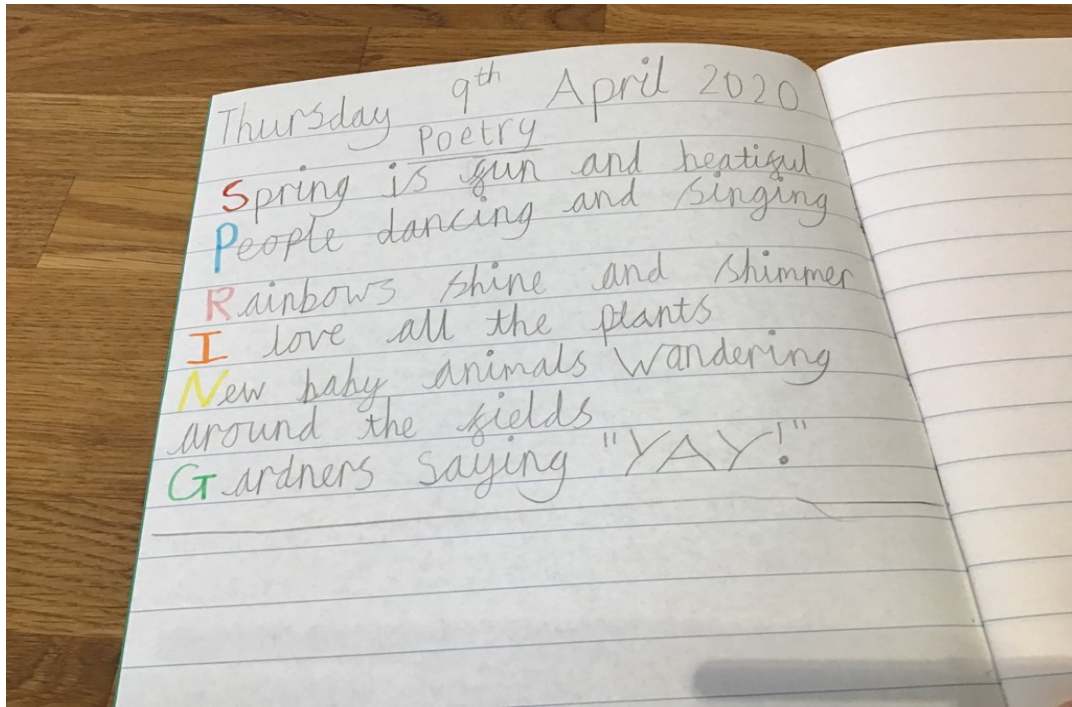 Thursday 9th April 2020
Poetry
Spring is fun and beatiful
People dancing and singing
Rainbows shine and shimmer
I love all the plants
New baby animals wandering
around the fields
Gardners saying "YAY!"